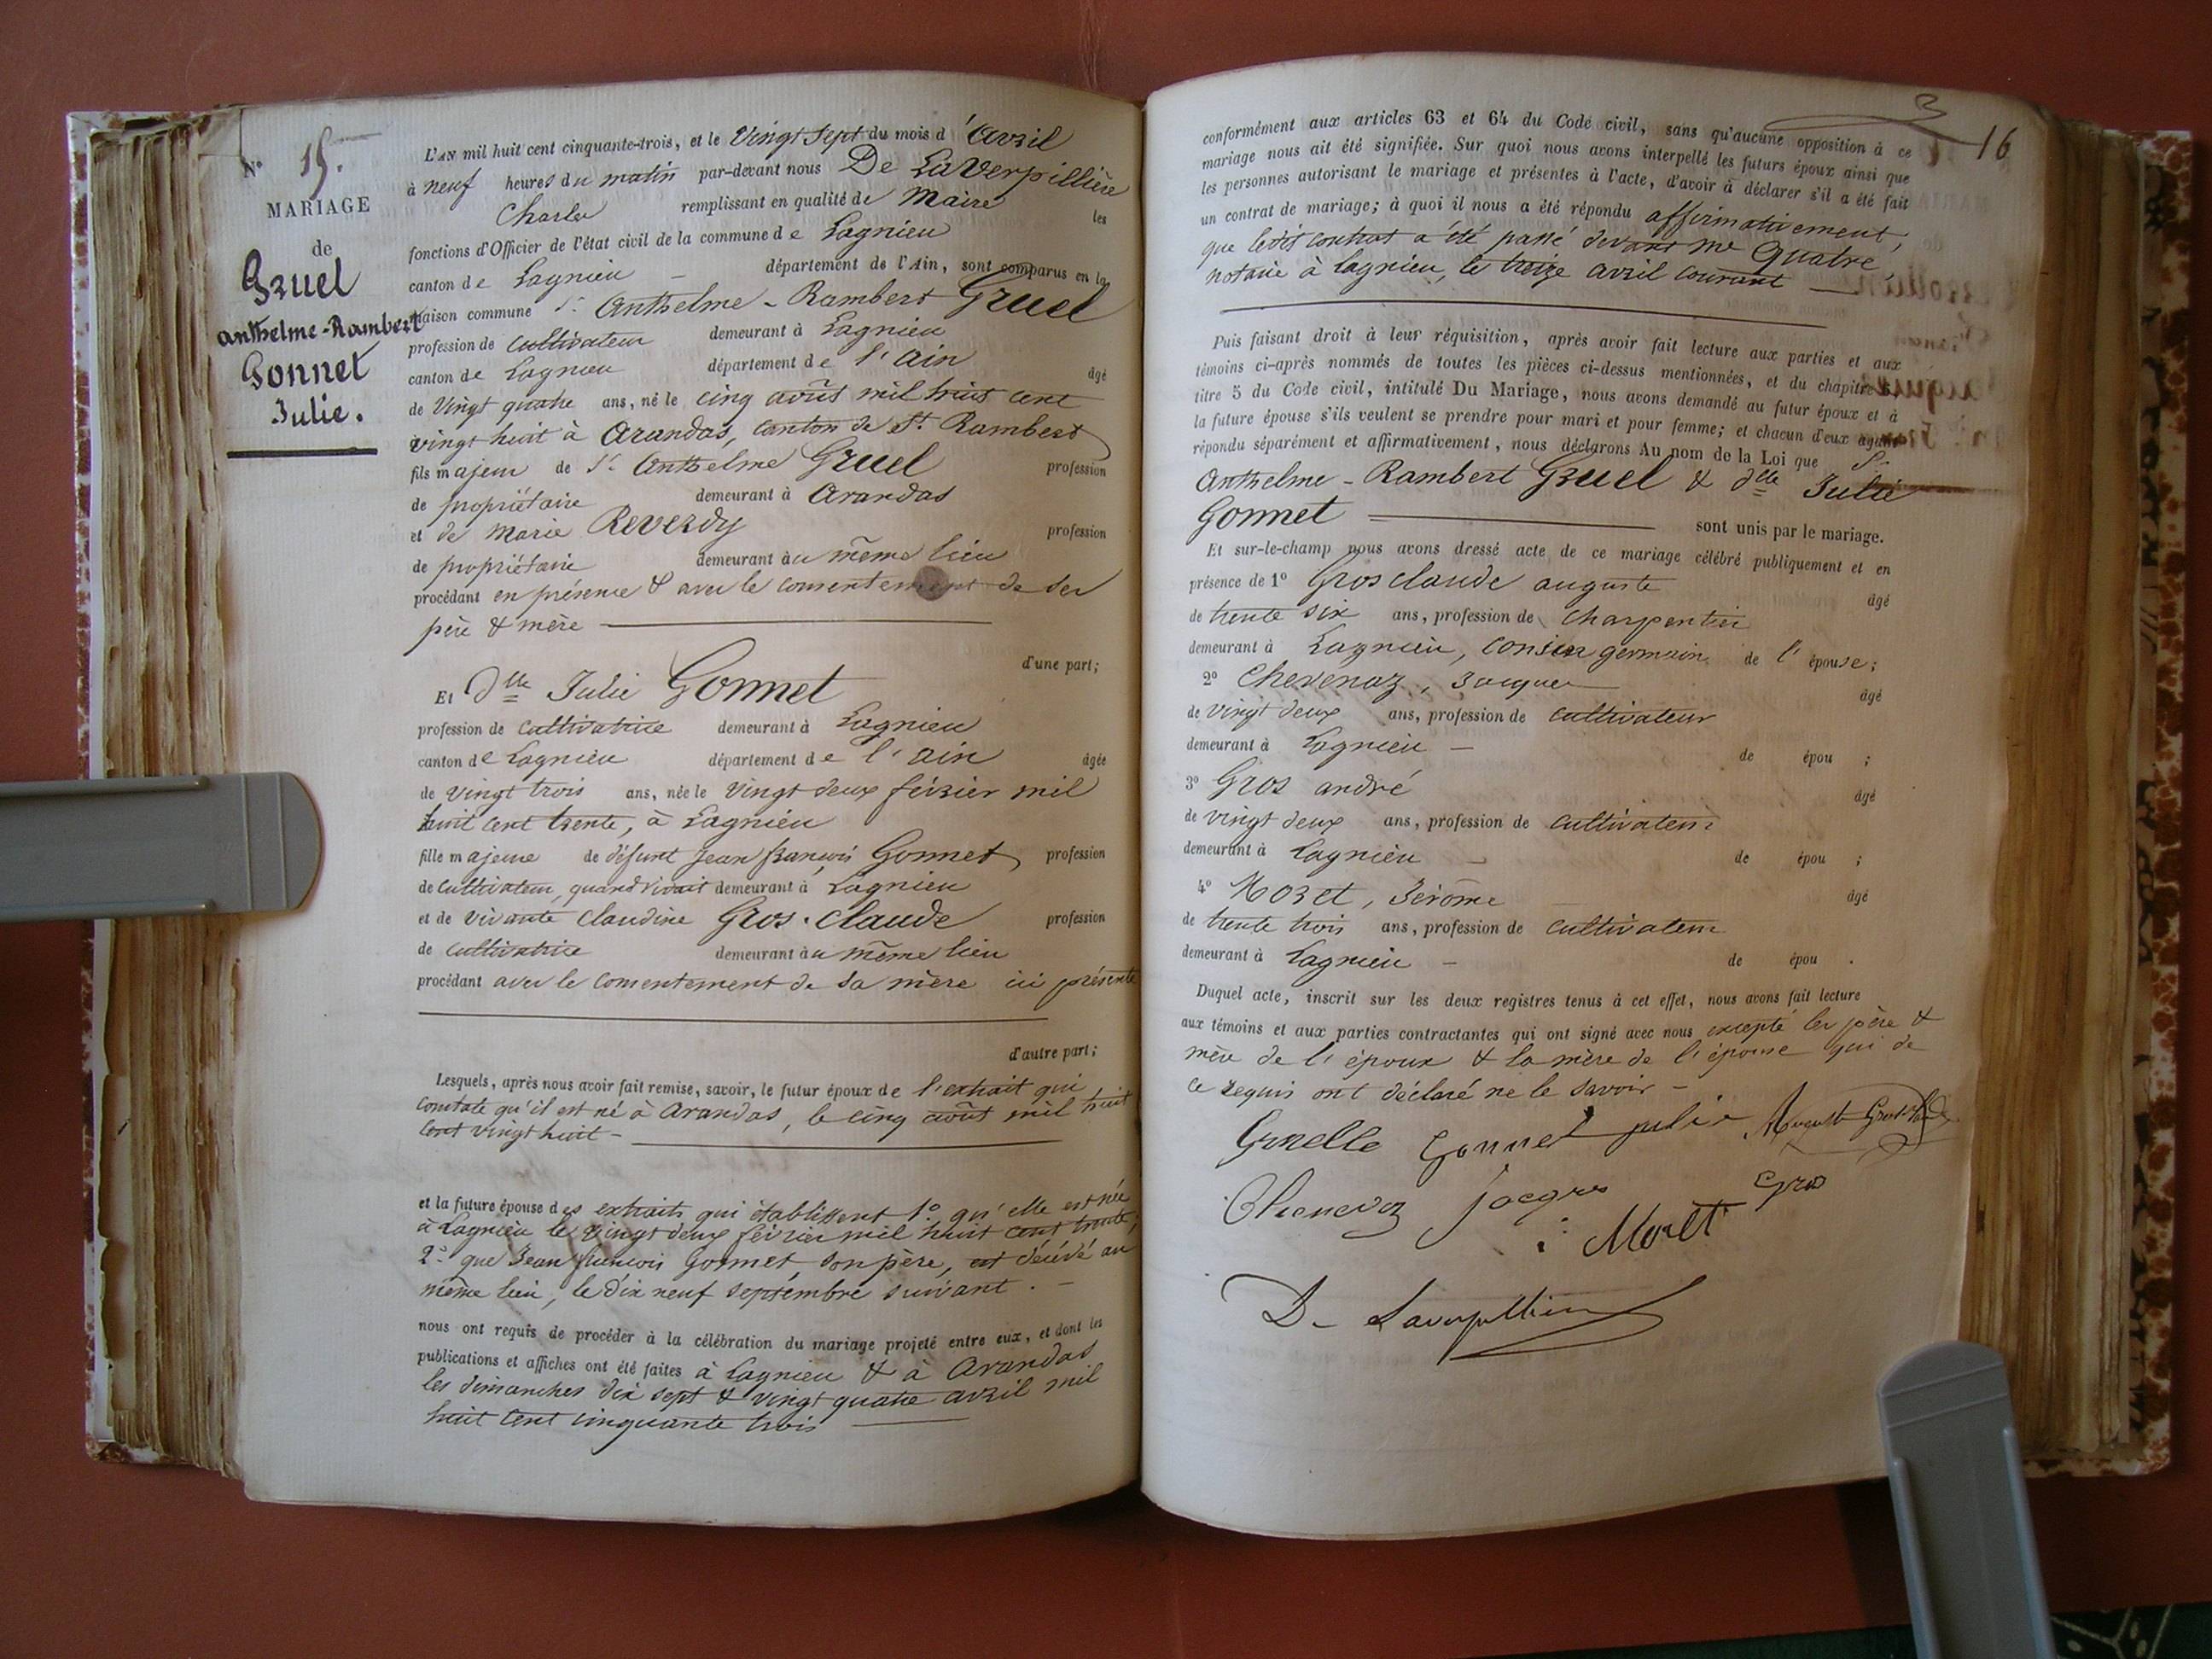 N° 15.
MARIAGE
de
Gruel
Anthelme-Rambert
Gonnet
Julie.
L'AN mil huit cent cinquante-trois, et le Vingt Sept du mois d'Avril
à neuf heures du matin par-devant nous De LaVerpillière
Charles remplissant en qualité de Maire les
fonctions d'Officier de l'état civil de la commune de Lagnieu
canton de Lagnieu – département de l'Ain, sont comparus en la
maison commune Sr Anthelme-Rambert Gruel
profession de Cultivateur demeurant à Lagnieu
canton de Lagnieu département de l'Ain âgé
de Vingt quatre ans, né le cinq août mil huit cent
vingt huit à Arandas, canton de St. Rambert
fils majeur de Sr Anthelme Gruel profession
de propriétaire demeurant à Arandas
et de Marie Reverdy profession
de propriétaire demeurant au même lieu
procédant en présence & avec le consentement de ses
père & mère
d'une part;
Et Dlle Julie Gonnet
profession de Cultivatrice demeurant à Lagnieu
canton de Lagnieu département de l'Ain âgée
de vingt trois ans, née le vingt deux février mil
huit cent trente, à Lagnieu
fille majeure de défunt Jean françois Gonnet, profession
de Cultivateur, quand vivait demeurant à Lagnieu
et de vivante Claudine Gros-Claude profession
de Cultivatrice demeurant au même lieu
procédant avec le consentement de sa mère ici présente
d'autre part;
Lesquels, après nous avoir fait remise, savoir, le futur époux de l'extrait qui
constate qu'il est né à Arandas, le cinq août mil huit
cent vingt huit –
et la future épouse des extraits qui établissent 1° qu'elle est née
à Lagnieu le vingt deux février mil huit cent trente,
2° que Jean françois Gonnet, son père, est décédé au
même lieu, le dix neuf septembre suivant. –
nous ont requis de procéder à la célébration du mariage projeté entre eux, et dont les
publications et affiches ont été faites à Lagnieu & à Arandas
les dimanches dix sept & vingt quatre avril mil
huit cent cinquante trois
16
conformément aux articles 63 et 64 du Code civil, sans qu'aucune opposition à ce
mariage nous ait été signifiée. Sur quoi nous avons interpellé les futurs époux ainsi que
les personnes autorisant le mariage et présentes à l'acte, d'avoir à déclarer s'il a été fait
un contrat de mariage; à quoi il nous a été répondu affirmativement,
que ledit contrat a été passé devant Me Quatre,
notaire à Lagnieu, le treize avril courant
Puis faisant droit à leur réquisition, après avoir fait lecture aux parties et aux
témoins ci-après nommés de toutes les pièces ci-dessus mentionnées, et du chapitre
titre 5 du Code civil, intitulé Du Mariage, nous avons demandé au futur époux et à
la future épouse s'ils veulent se prendre pour mari et pour femme; et chacun d'eux ayant
répondu séparément et affirmativement, nous déclarons Au nom de la Loi que Sr
Anthelme-Rambert Gruel & Dlle Julie
Gonnet sont unis par le mariage.
Et sur-le-champ nous avons dressé acte de ce mariage célébré publiquement et en
présence de 1° Grosclaude auguste âgé
de trente six ans, profession de Charpentier
demeurant à Lagnieu, cousin germain de l'épouse;
2° Chevenoz, Jacques âgé
de vingt deux ans, profession de cultivateur
demeurant à Lagnieu – de épou ;
3° Gros andré âgé
de vingt deux ans, profession de cultivateur
demeurant à Lagnieu – de épou ;
4° Moret, Jérôme âgé
de trente trois ans, profession de cultivateur
demeurant à Lagnieu – de épou .
Duquel acte, inscrit sur les deux registres tenus à cet effet, nous avons fait lecture
aux témoins et aux parties contractantes qui ont signé avec nous excepté les père &
mère de l'époux & la mère de l'épouse qui de
ce requis ont déclaré ne le savoir –
Gruelle Gonnet julie Auguste Grosclaude
Chenevoz jacques Gros
Moret
De Laverpillière